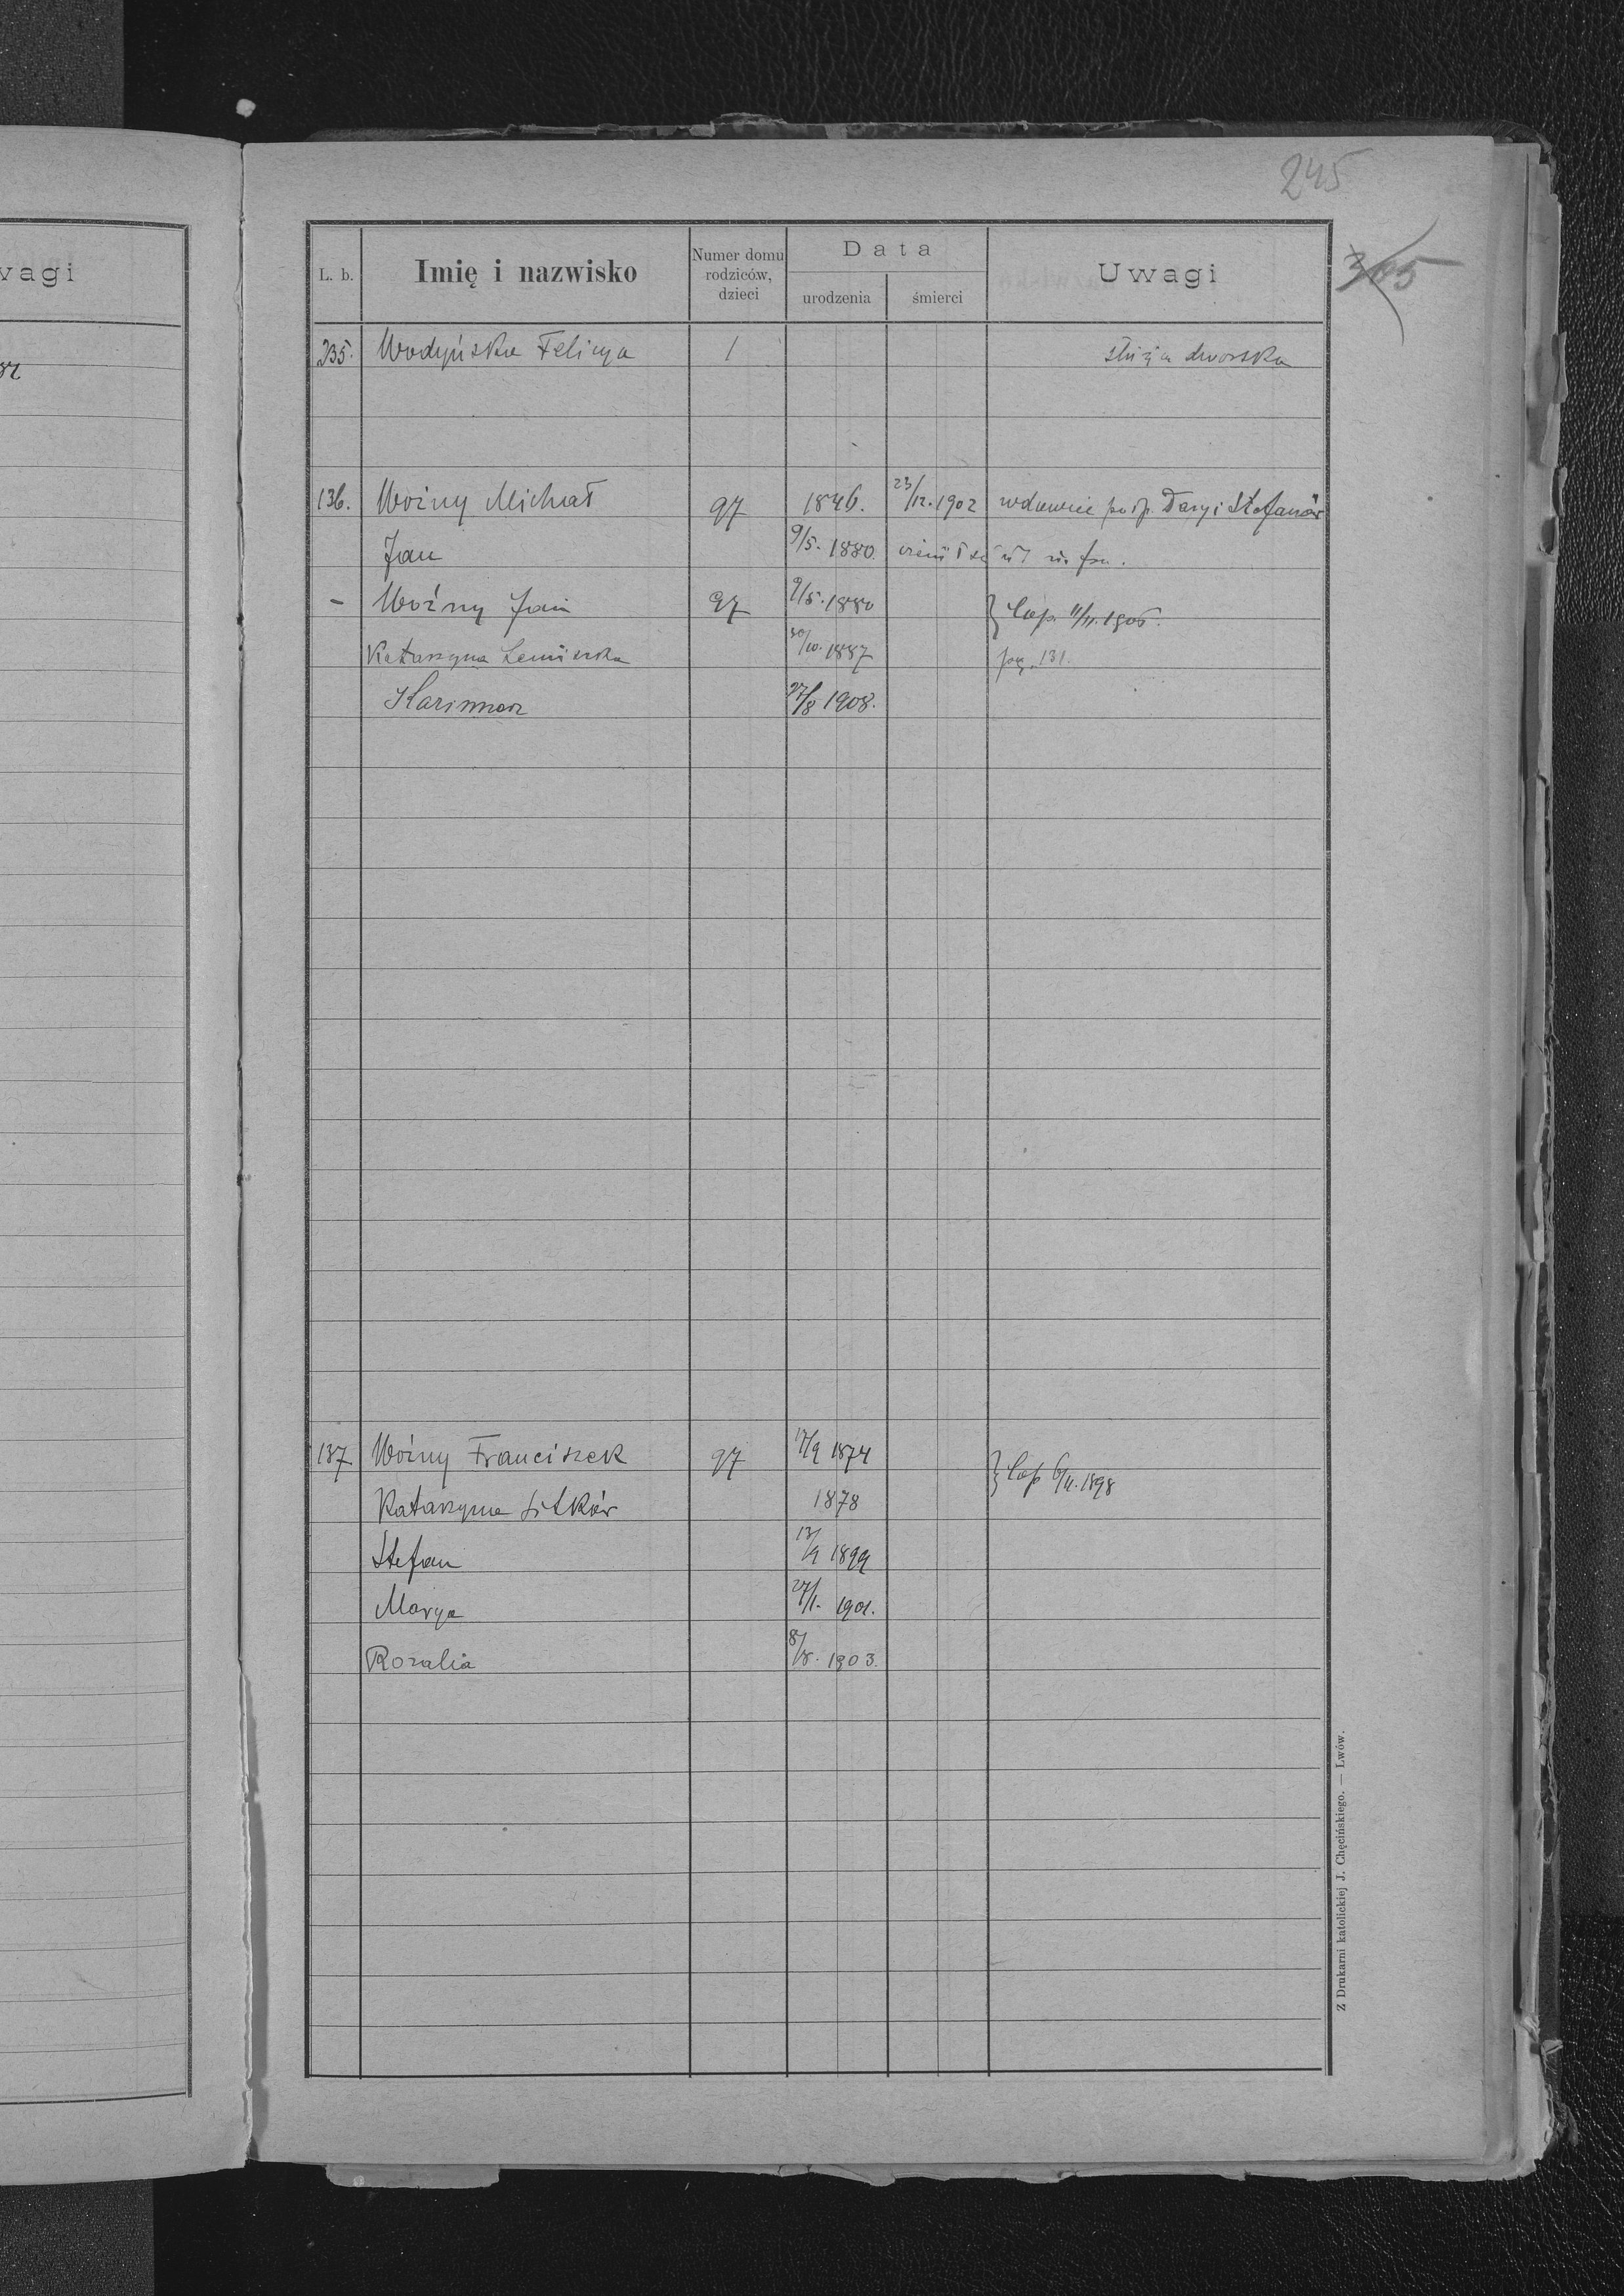 245
305
wagi
L. b. Imię i nazwisko Numer domu rodziców, dzieci Data urodzenia śmierci Uwagi
235. Wodyńska Felicya 1 służąca dworska
136. Woźny Michał 97 1846. 23/12.1902 wdowiec po śp. Stefanów
Jan 9/5. 1880.
– Woźny Jan 97 9/5.1880 } Cop. 11/11.1906.
Katarzyna 30/10.1887 pag. 131.
Kazimierz 27/8 1908.
137 Woźny Franciszek 97 17/9 1874 } Cop 6/11.1898
Katarzyna Sitków 1878
Stefan 13/9 1899
Marya 27/1. 1901.
Rozalia 8/8. 1903.
Z Drukarni katolickiej J. Chęcińskiego. — Lwów.